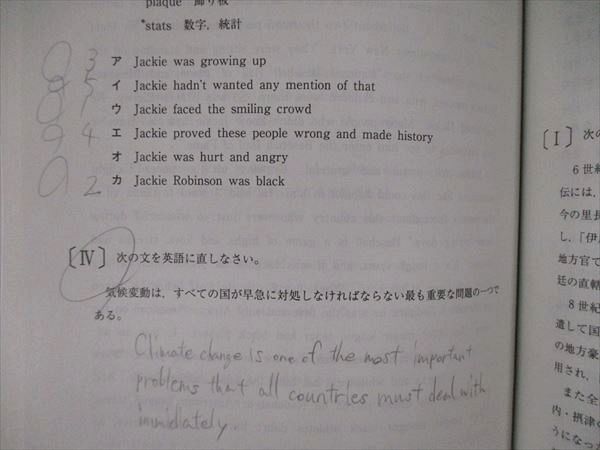 plaque 飾り板
*stats 数字，統計
3 ア Jackie was growing up
5 イ Jackie hadn't wanted any mention of that
1 ウ Jackie faced the smiling crowd
4 エ Jackie proved these people wrong and made history
オ Jackie was hurt and angry
2 カ Jackie Robinson was black
〔Ⅳ〕 次の文を英語に直しなさい。
気候変動は，すべての国が早急に対処しなければならない最も重要な問題の一つで
ある。
Climate change is one of the most important
problems that all countries must deal with
immidately
〔Ⅰ〕 次の
6世紀
伝には，
今の里長
し，「伊
地方官で
廷の直轄
8世紀
遣して国
の地方豪
用され，
また全
内・摂津
うになった